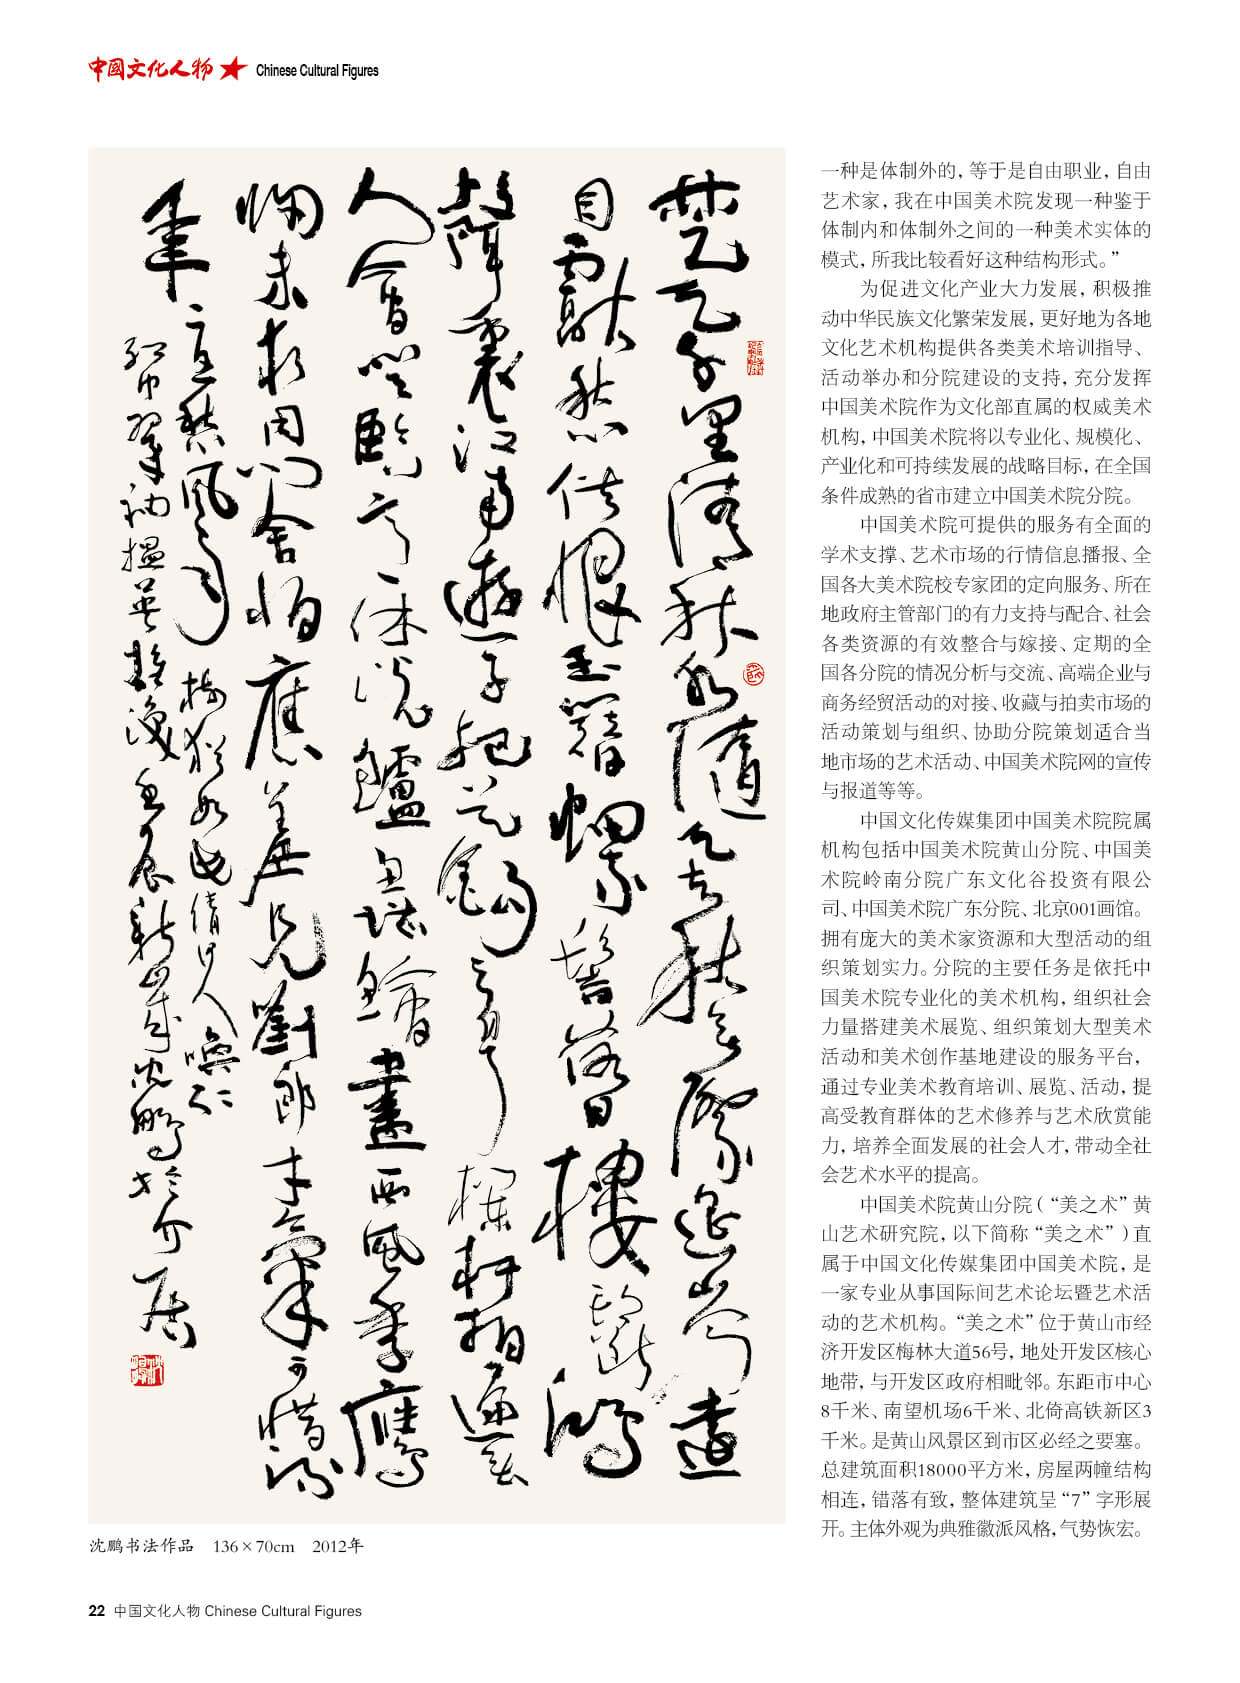 中國文化人物 Chinese Cultural Figures
楚天千里清秋水隨天去秋無際遙岑遠
目獻愁供恨玉簪螺髻落日樓頭斷鴻
聲裏江南遊子把吳鈎看了欄杆拍遍無
人會登臨意休說鱸魚堪鱠盡西風季鷹
歸未求田問舍怕應羞見劉郎才氣可惜流
年憂愁風雨樹猶如此倩何人喚取
紅巾翠袖揾英雄淚壬辰新歲沈鵬於介居
沈鹏书法作品 136×70cm 2012年
一种是体制外的，等于是自由职业，自由
艺术家，我在中国美术院发现一种鉴于
体制内和体制外之间的一种美术实体的
模式，所我比较看好这种结构形式。”
为促进文化产业大力发展，积极推
动中华民族文化繁荣发展，更好地为各地
文化艺术机构提供各类美术培训指导、
活动举办和分院建设的支持，充分发挥
中国美术院作为文化部直属的权威美术
机构，中国美术院将以专业化、规模化、
产业化和可持续发展的战略目标，在全国
条件成熟的省市建立中国美术院分院。
中国美术院可提供的服务有全面的
学术支撑、艺术市场的行情信息播报、全
国各大美术院校专家团的定向服务、所在
地政府主管部门的有力支持与配合、社会
各类资源的有效整合与嫁接、定期的全
国各分院的情况分析与交流、高端企业与
商务经贸活动的对接、收藏与拍卖市场的
活动策划与组织、协助分院策划适合当
地市场的艺术活动、中国美术院网的宣传
与报道等等。
中国文化传媒集团中国美术院院属
机构包括中国美术院黄山分院、中国美
术院岭南分院广东文化谷投资有限公
司、中国美术院广东分院、北京001画馆。
拥有庞大的美术家资源和大型活动的组
织策划实力。分院的主要任务是依托中
国美术院专业化的美术机构，组织社会
力量搭建美术展览、组织策划大型美术
活动和美术创作基地建设的服务平台，
通过专业美术教育培训、展览、活动，提
高受教育群体的艺术修养与艺术欣赏能
力，培养全面发展的社会人才，带动全社
会艺术水平的提高。
中国美术院黄山分院（“美之术”黄
山艺术研究院，以下简称“美之术”）直
属于中国文化传媒集团中国美术院，是
一家专业从事国际间艺术论坛暨艺术活
动的艺术机构。“美之术”位于黄山市经
济开发区梅林大道56号，地处开发区核心
地带，与开发区政府相毗邻。东距市中心
8千米、南望机场6千米、北倚高铁新区3
千米。是黄山风景区到市区必经之要塞。
总建筑面积18000平方米，房屋两幢结构
相连，错落有致，整体建筑呈“7”字形展
开。主体外观为典雅徽派风格，气势恢宏。
22 中国文化人物 Chinese Cultural Figures